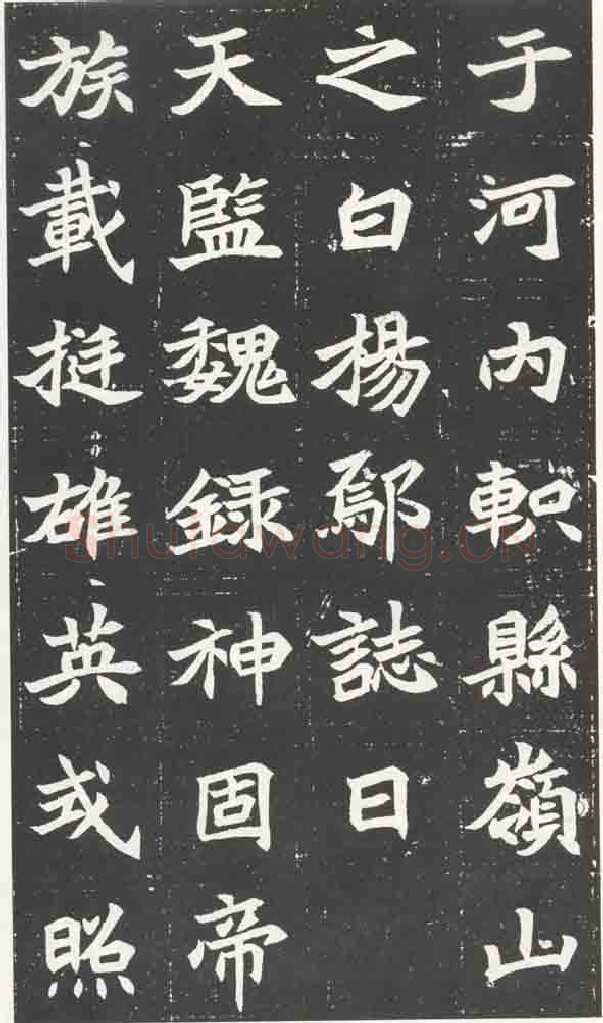 于河内軹縣嶺山
之白楊鄔誌曰
天監魏録神固帝
族載挺雄英或照
shufawang.cn